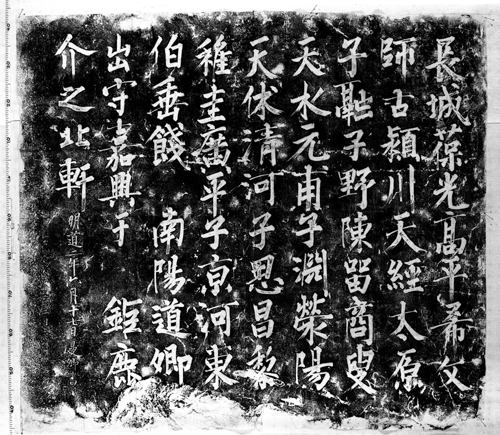 長城葆光高平希文
師古潁川天經太原
子子野陳留商叟
天水元甫子淵滎陽
天休清河子思昌黎
稚圭廣平子京河東
伯垂餞 南陽道卿
出守嘉興于 鉅鹿
介之北軒 明道二年七月十